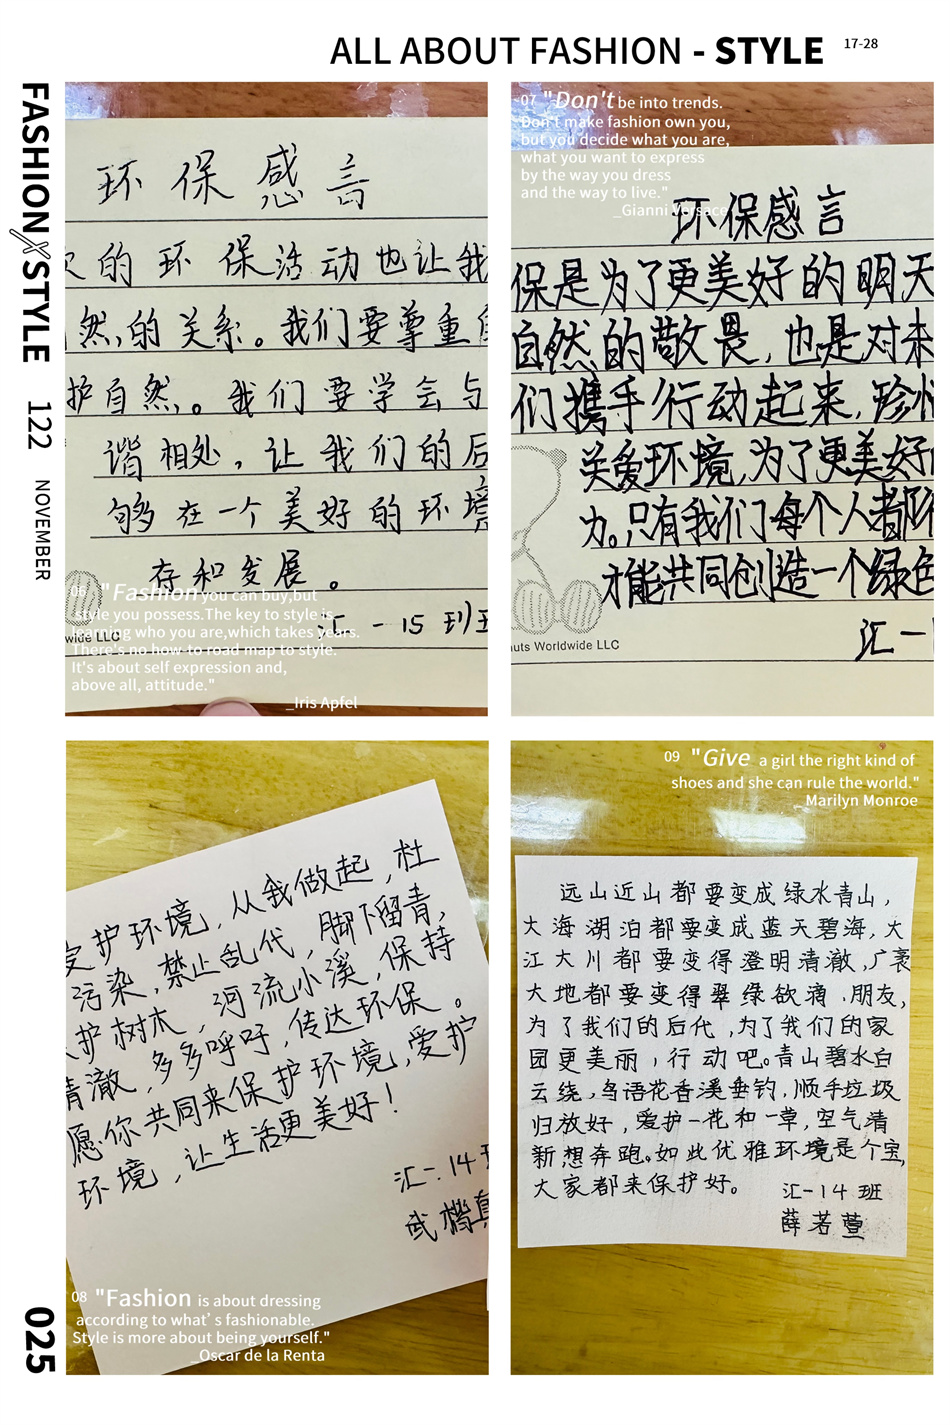 ALL ABOUT FASHION - STYLE 17-28
FASHION X STYLE 122 NOVEMBER
025
环保感言
的环保活动也让我
然的关系。我们要尊重
护自然。我们要学会与
谐相处，让我们的后
够在一个美好的环境
存和发展。
汇-15班
wide LLC
06 "Fashion you can buy,but
style you possess.The key to style is
learning who you are,which takes years.
There's no how to road map to style.
It's about self expression and,
above all, attitude."
_Iris Apfel
07 "Don't be into trends.
Don't make fashion own you,
but you decide what you are,
what you want to express
by the way you dress
and the way to live."
_Gianni Versace
环保感言
保是为了更美好的明天
自然的敬畏，也是对未
们携手行动起来，珍惜
关爱环境，为了更美好
力。只有我们每个人都
才能共同创造一个绿色
汇一
nuts Worldwide LLC
护环境，从我做起，杜
污染，禁止乱代，脚下留青，
护树木，河流小溪，保持
清澈，多多呼吁，传达环保。
愿你共同来保护环境，爱护
环境，让生活更美好！
汇-14
08 "Fashion is about dressing
according to what's fashionable.
Style is more about being yourself."
_Oscar de la Renta
09 "Give a girl the right kind of
shoes and she can rule the world."
Marilyn Monroe
远山近山都要变成绿水青山，
大海湖泊都要变成蓝天碧海，大
江大川都要变得澄明清澈，广袤
大地都要变得翠绿欲滴．朋友，
为了我们的后代，为了我们的家
园更美丽，行动吧。青山碧水白
云绕，鸟语花香溪垂钓，顺手垃圾
归放好，爱护一花和一草，空气清
新想奔跑。如此优雅环境是个宝，
大家都来保护好。
汇-14班
薛若萱